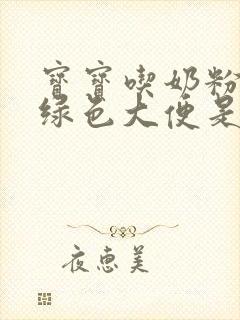 寶寶喫奶粉
綠色大便是
夜惠美